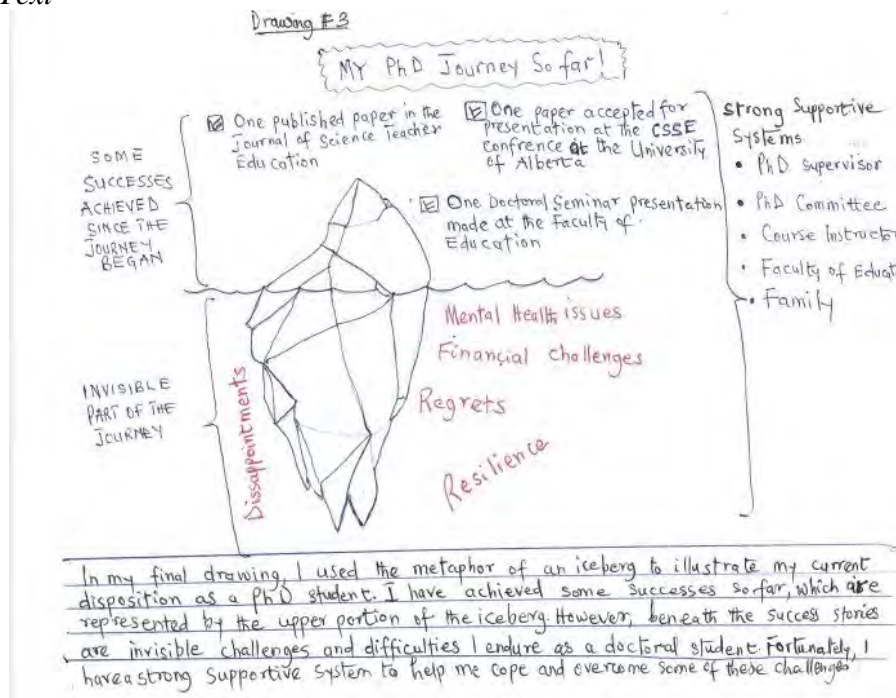 Text
Drawing #3
MY PhD Journey So far!
SOME
SUCCESSES
ACHIEVED
SINCE THE
JOURNEY
BEGAN
One published paper in the
Journal of Science Teacher
Education
One paper accepted for
presentation at the CSSE
confrence at the University
of Alberta
One Doctoral Seminar presentation
made at the Faculty of
Education
Strong Supportive
Systems
• PhD Supervisor
• PhD Committee
• Course Instructor
• Faculty of Educat
• Family
INVISIBLE
PART OF THE
JOURNEY
Dissappointments
Mental Health issues
Financial challenges
Regrets
Resilience
In my final drawing, I used the metaphor of an iceberg to illustrate my current
disposition as a PhD student. I have achieved some successes so far, which are
represented by the upper portion of the iceberg. However, beneath the success stories
are invisible challenges and difficulties I endure as a doctoral student. Fortunately, I
have a strong supportive system to help me cope and overcome some of these challenges